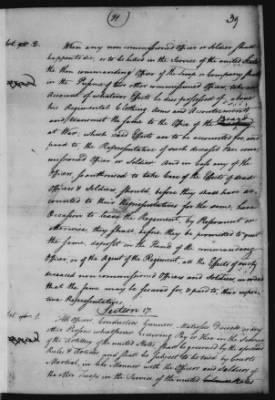 (91)
39
Art. 2.
When any non commissioned officer or Soldier shall
happen to die, or to be killed in the Service of the united States
the then commanding officer of the troop or company shall
in the Presence of two other commissioned officers, take an
Account of whatever Effects he dies possessed of, above
his Regimental Cloathing Arms and Accoutrements
and transmit the same to the Office of the Board
at War, which said Effects are to be accounted for, and
paid to the Representatives of such deceased non com
missioned officer or Soldier. And in Case any of the
officers, so authorised to take Care of the Effects of dead
officers & Soldiers should, before they shall have ac
counted to their Representatives for the same, have
Occasion to leave the Regiment, by Preferment or
otherwise, they shall before they be permitted to quit
the same, deposit in the Hands of the commanding
officer, or of the Agent of the Regiment, all the Effects of such
deceased non commissioned officers and Soldiers, in order
that the same may be secured for, & paid to, their respec
tive Representatives.
Section 17.
Art. 1.
All officers Conductors Gunners Matrosses Drivers or any
other Persons whatsoever receiving Pay or Hire in the Service
of the Artillery of the united States shall be governed by the aforesaid
Rules & Articles, and shall be subject to be tried by Courts
Martial, in like Manner with the officers and Soldiers of
the other Troops in the Service of the united States